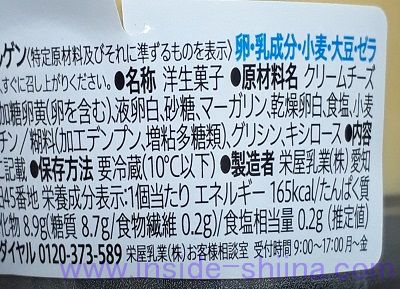 ルゲン〈特定原材料及びそれに準ずるものを表示〉 卵・乳成分・小麦・大豆・ゼラ
すぐに召し上がりください。●名称 洋生菓子 ●原材料名 クリームチーズ
加糖卵黄(卵を含む)、液卵白、砂糖、マーガリン、乾燥卵白、食塩、小麦
チン／糊料(加工デンプン、増粘多糖類)、グリシン、キシロース ●内容
記載 ●保存方法 要冷蔵(10℃以下) ●製造者 栄屋乳業(株) 愛知
45番地 栄養成分表示:1個当たり エネルギー 165kcal/たんぱく質
化物 8.9g(糖質 8.7g/食物繊維 0.2g)/食塩相当量 0.2g (推定値)
ダイヤル 0120-373-589 栄屋乳業(株)お客様相談室 受付時間 9:00〜17:00 月〜金
www.inside-shiina.com